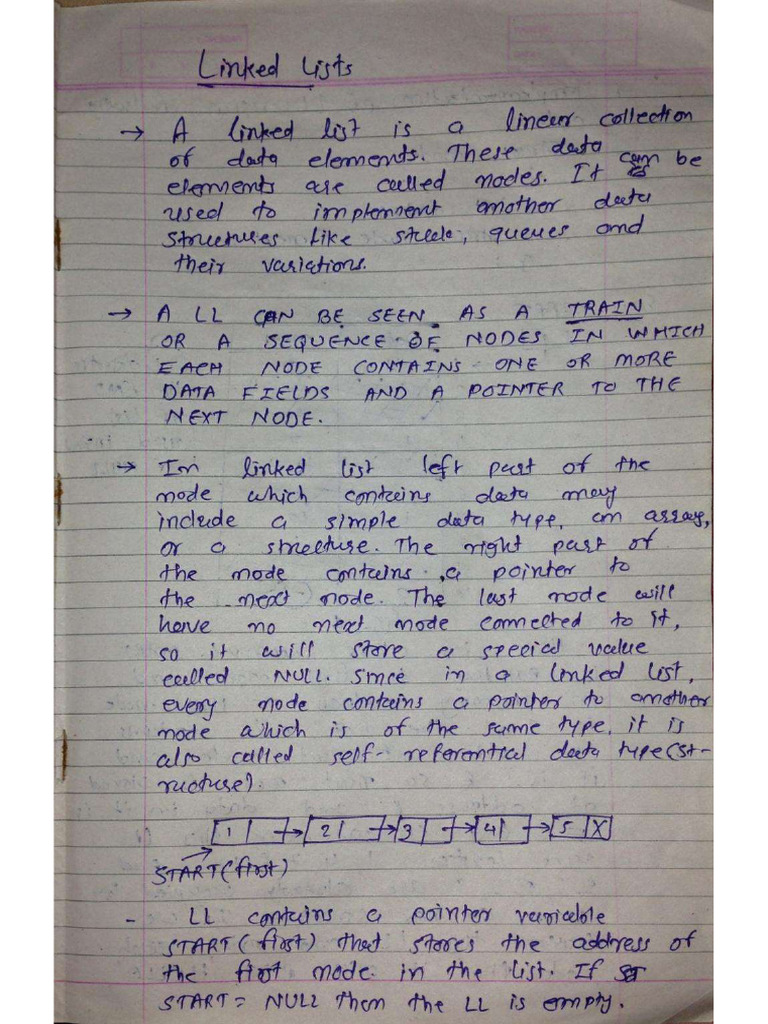 Linked Lists
→ A linked list is a linear collection
of data elements. These data
elements are called nodes. It can be
used to implement another data
structures like stack, queues and
their variations.
→ A LL CAN BE SEEN AS A TRAIN
OR A SEQUENCE OF NODES IN WHICH
EACH NODE CONTAINS ONE OR MORE
DATA FIELDS AND A POINTER TO THE
NEXT NODE.
→ In linked list left part of the
node which contains data may
include a simple data type, an array,
or a structure. The right part of
the node contains a pointer to
the next node. The last node will
have no next node connected to it,
so it will store a special value
called NULL. Since in a linked list,
every node contains a pointer to another
node which is of the same type, it is
also called self-referential data type (st-
ructure).
1 → 2 → 3 → 4 → 5 X
START (first)
- LL contains a pointer variable
START (first) that stores the address of
the first node in the list. If
START = NULL then the LL is empty.